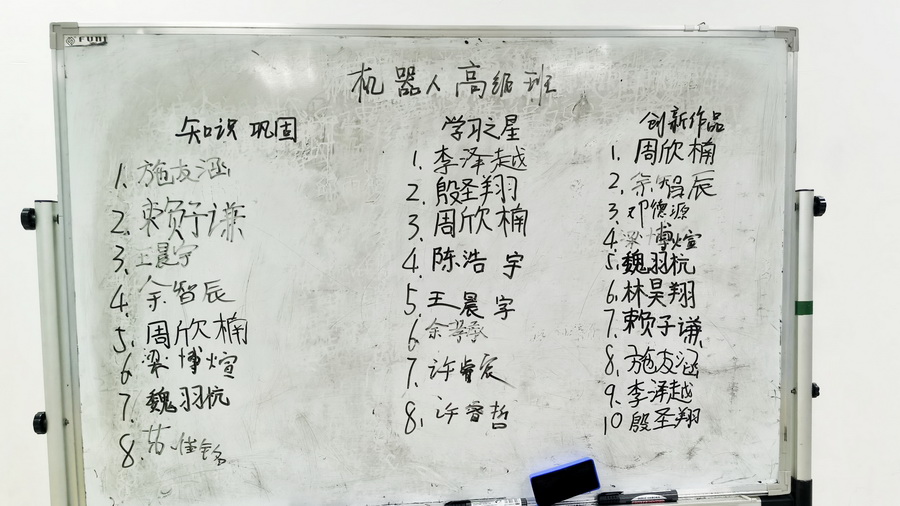 机器人高级班
知识巩固
1. 施友涵
2. 赖子谦
3. 王晨宇
4. 余智辰
5. 周欣楠
6 梁博煊
7. 魏羽杭
8.
学习之星
1. 李泽越
2. 殷圣翔
3. 周欣楠
4. 陈浩宇
5. 王晨宇
6
7. 许睿宸
8. 许睿哲
创新作品
1. 周欣楠
2. 余智辰
3. 邓德源
4. 梁博煊
5. 魏羽杭
6. 林昊翔
7. 赖子谦
8. 施友涵
9. 李泽越
10 殷圣翔